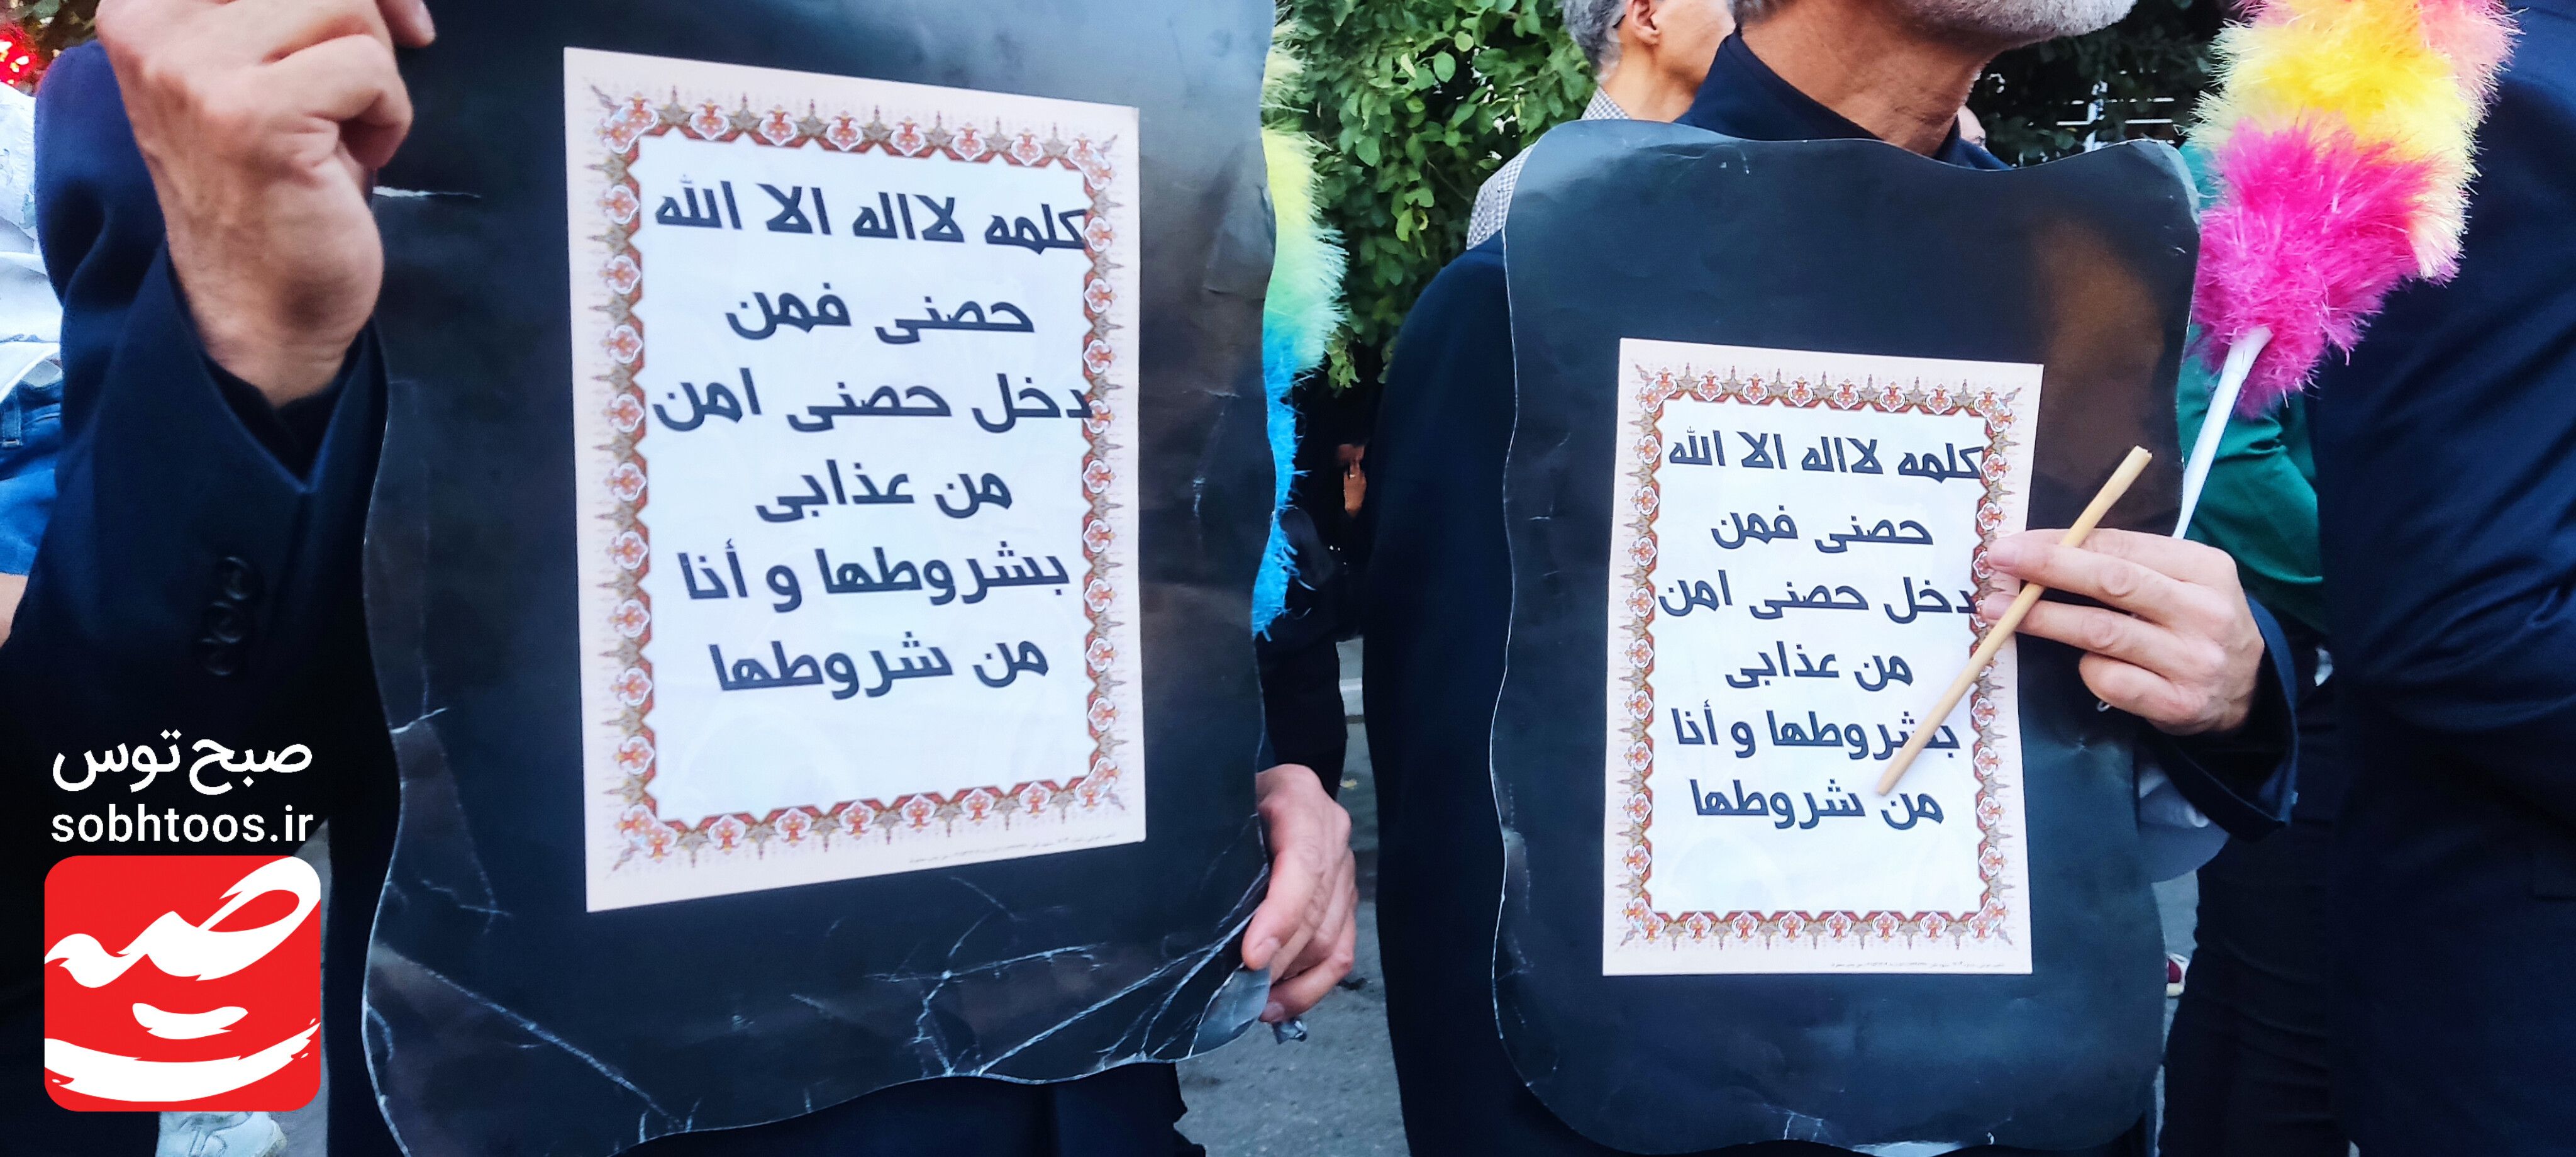 كلمه لااله الا الله
حصنی فمن
دخل حصنی امن
من عذابی
بشروطها و أنا
من شروطها
كلمه لااله الا الله
حصنی فمن
دخل حصنی امن
من عذابی
بشروطها و أنا
من شروطها
صبح توس
sobhtoos.ir